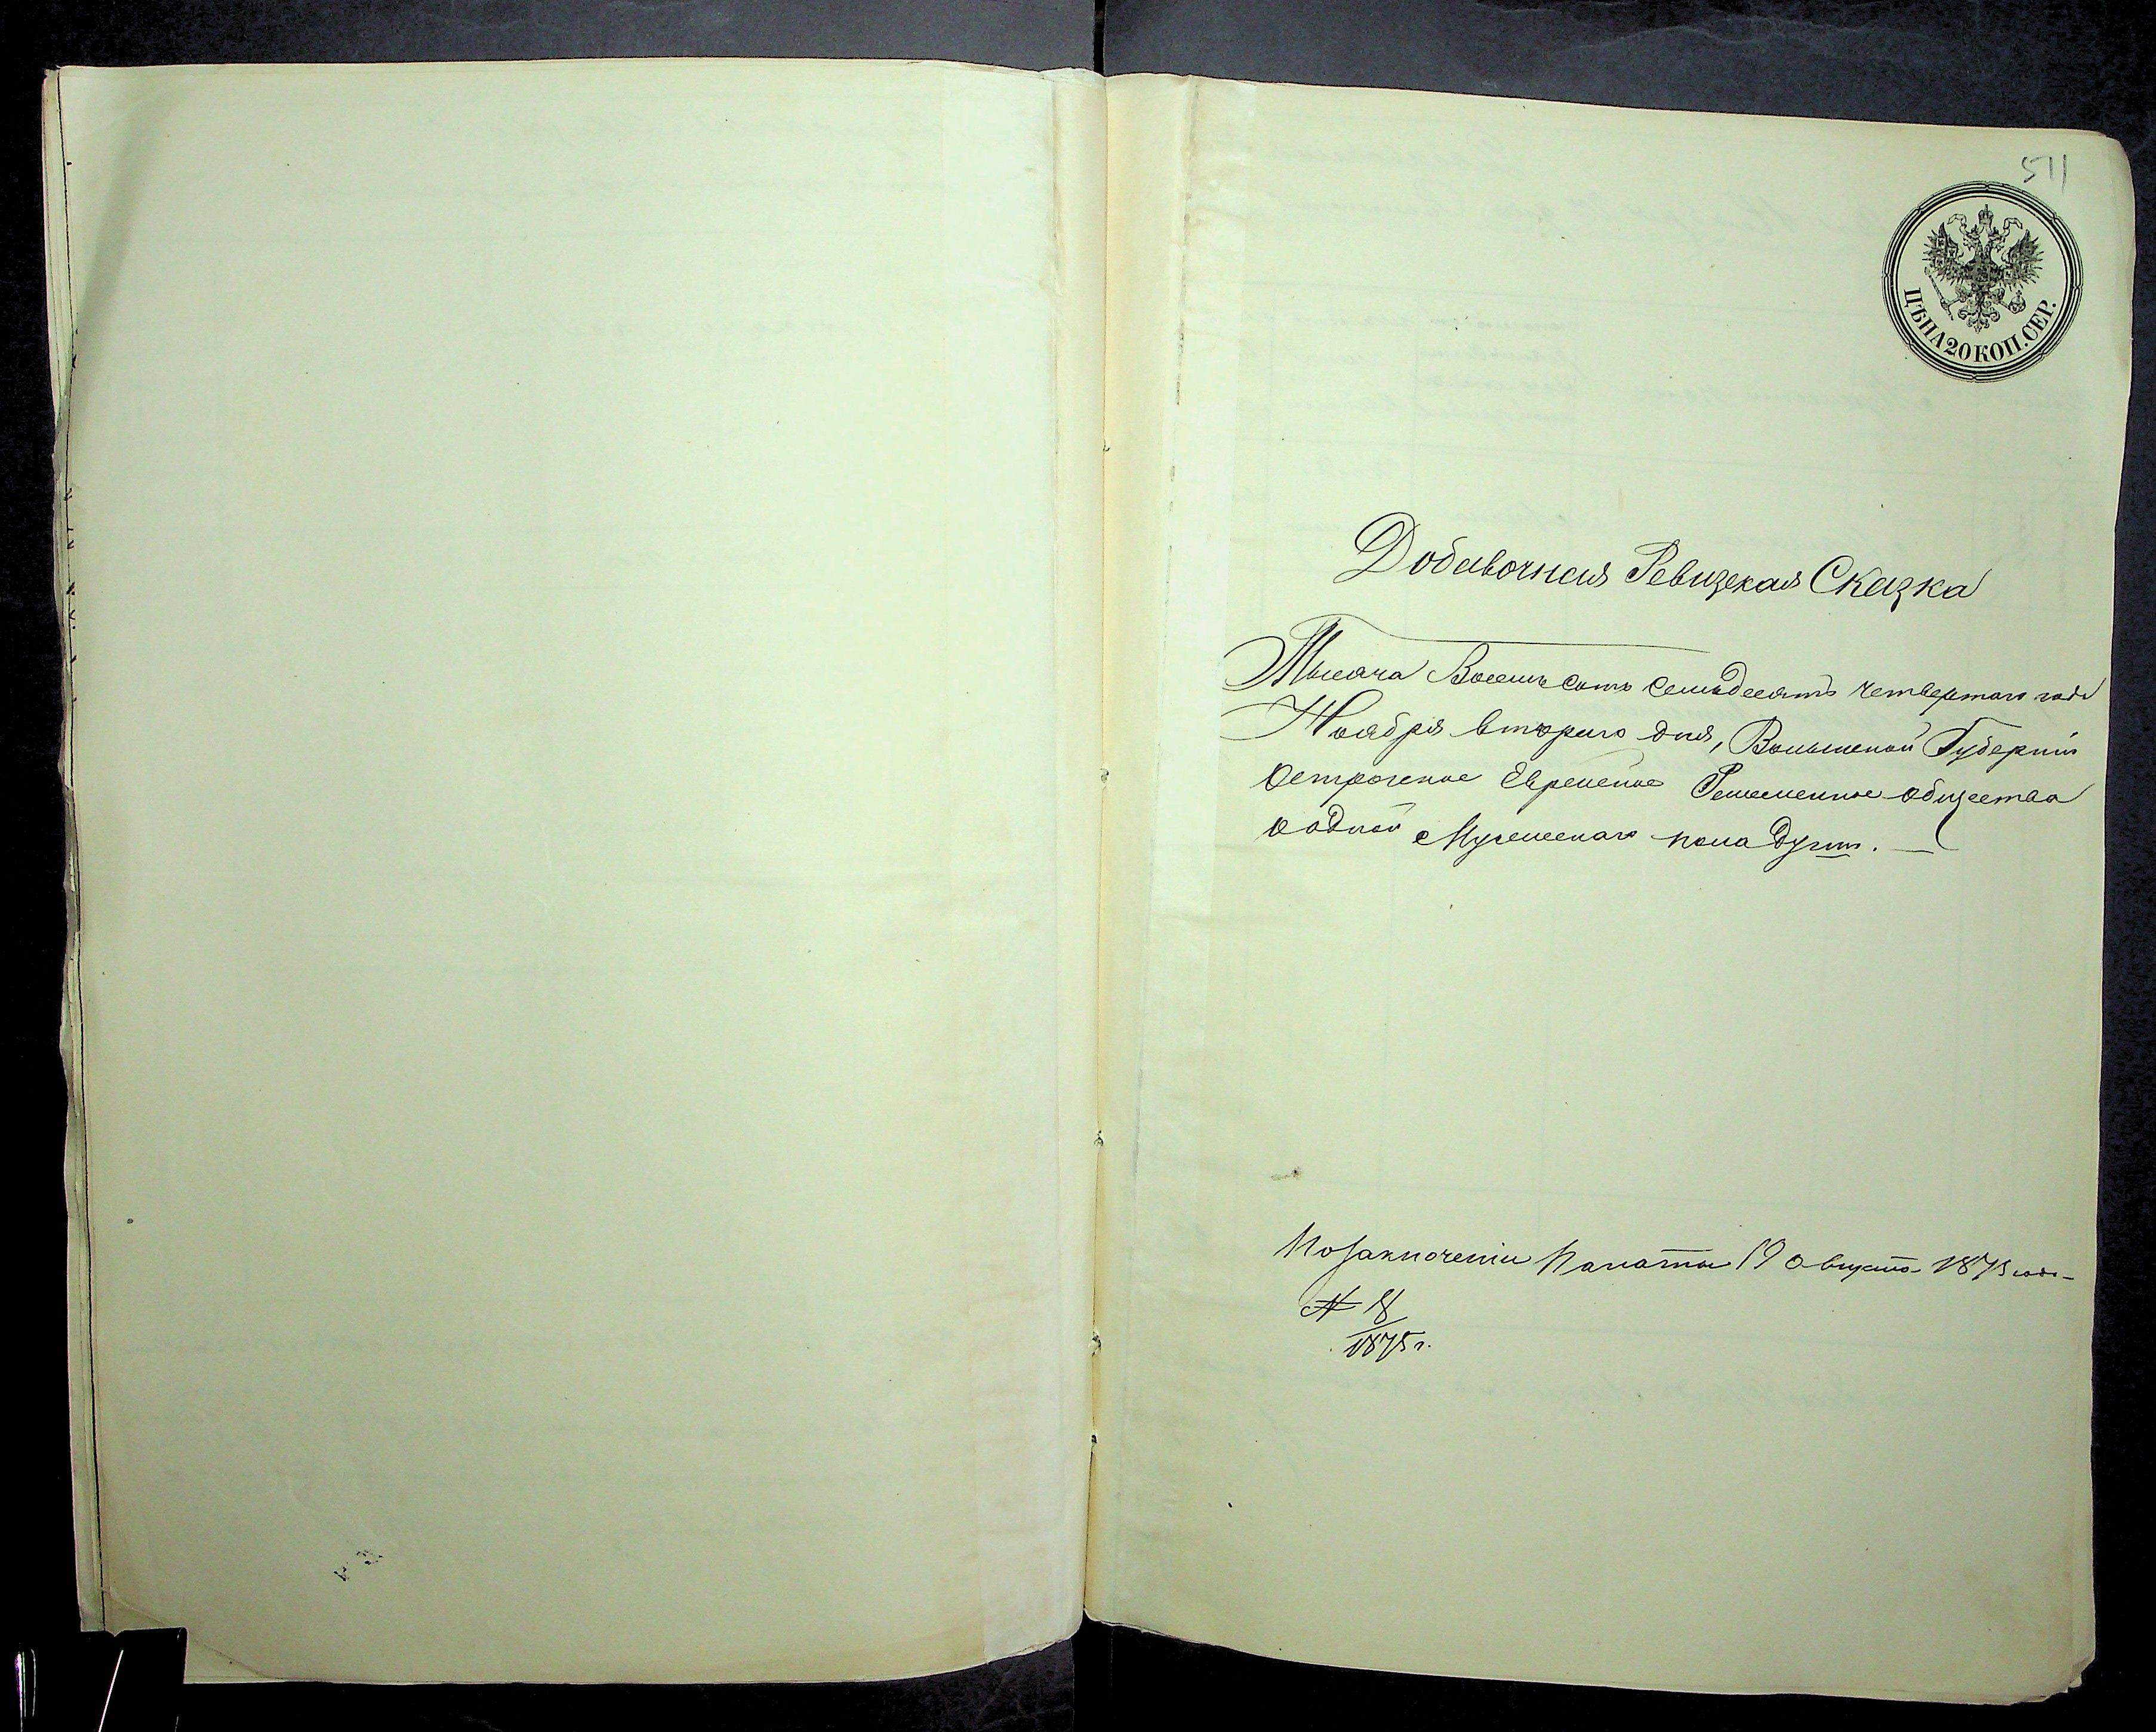 511
ЦѢНА 20 КОП. СЕР.
Добавочная Ревизская Сказка
Тысяча Восемьсотъ семьдесятъ четвертаго года
Ноября втораго дня, Волынской Губерніи
Острожское Еврейское общества
о одной Мужескаго пола души.
По заключенію Палаты 19 августа 1875 года
№ 8
1875 г.